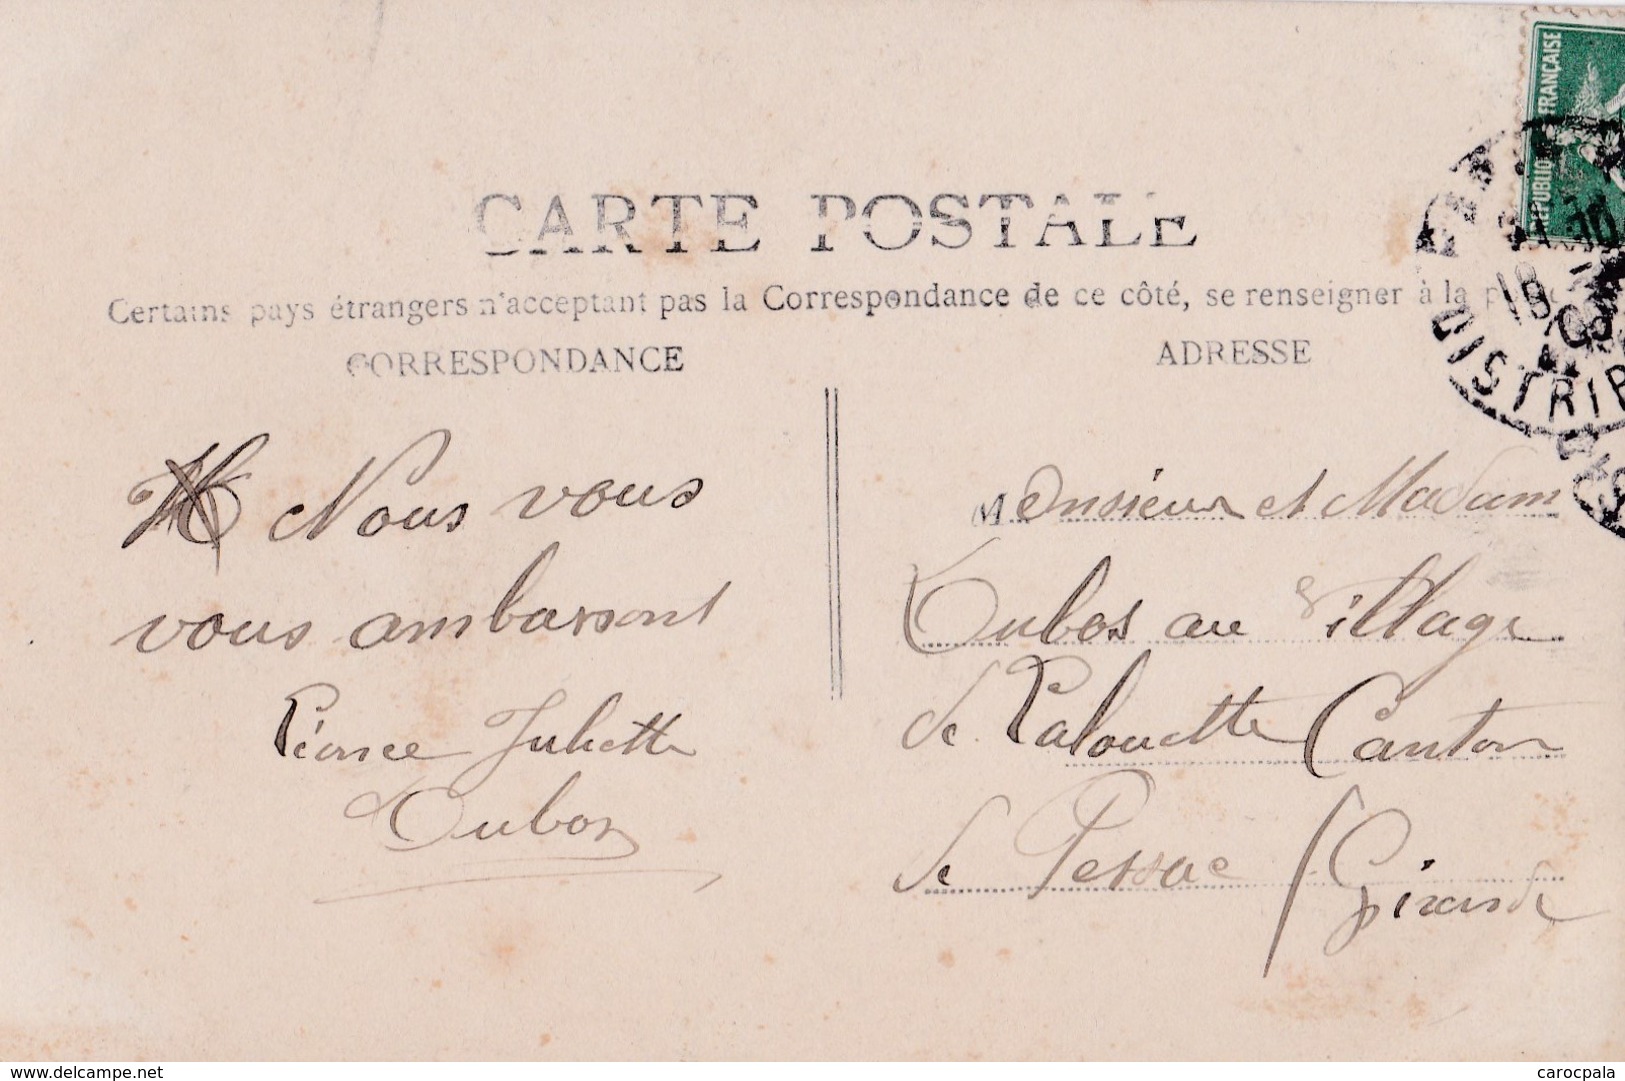 RÉPUBLIQUE FRANÇAISE
CARTE POSTALE
Certains pays étrangers n'acceptant pas la Correspondance de ce côté, se renseigner à la
CORRESPONDANCE
ADRESSE
DISTRIB
Nous vous
vous ambarsont
Juliette
Dubos
Monsieur et Madam
Dubos au village
de Lalouette Canton
de Pessac / Gironde
www.delcampe.net
carocpala